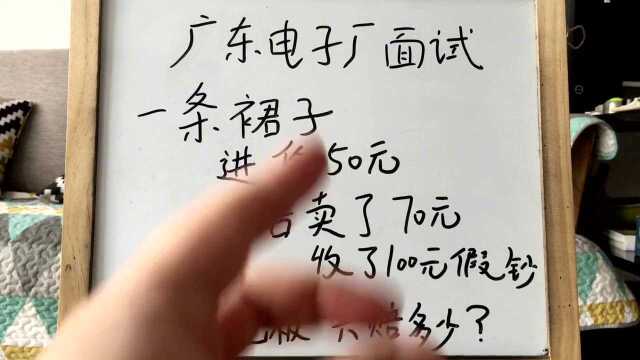 广东电子厂面试
一条裙子
进 50元
卖了70元
收了100元假钞
赔多少？